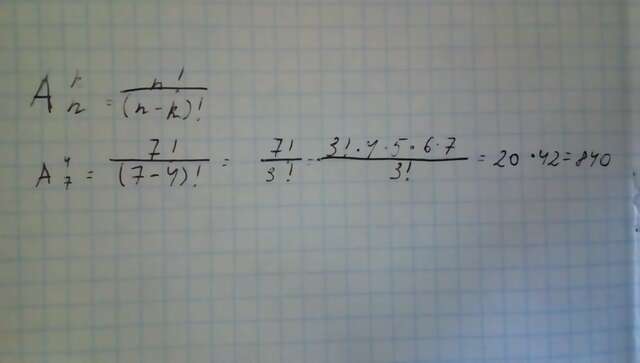 A_n^k = n!/(n-k)!
A_7^4 = 7!/(7-4)! = 7!/3! = 3!·4·5·6·7/3! = 20·42=840